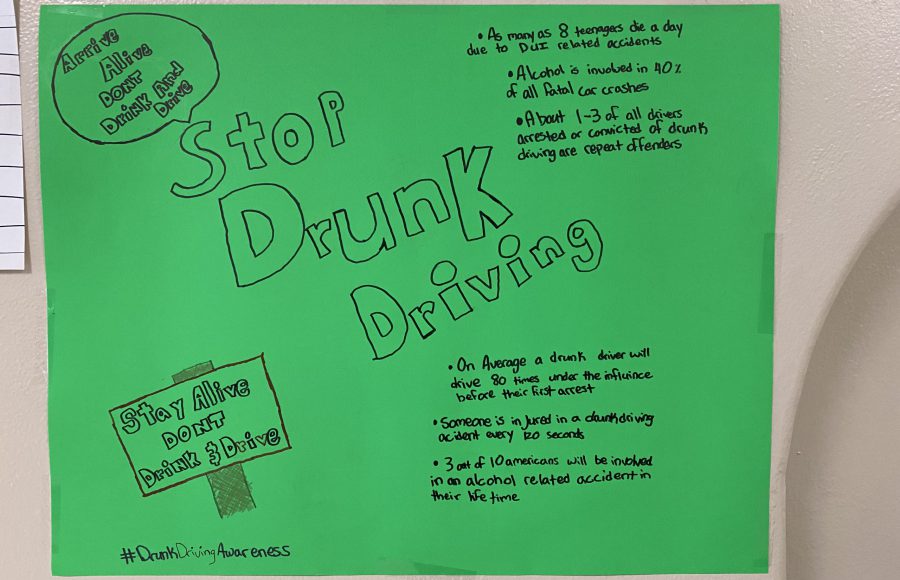 Arrive
Alive
DONT
Drink And
Drive
Stop
Drunk
Driving
• As many as 8 teenagers die a day
due to DUI related accidents
• Alcohol is involved in 40%
of all fatal car crashes
• About 1-3 of all drivers
arrested or convicted of drunk
driving are repeat offenders
• On Average a drunk driver will
drive 80 times under the influince
before their first arrest
• Someone is injured in a drunk driving
acident every 120 seconds
• 3 out of 10 americans will be involved
in an alcohol related accident in
their life time
Stay Alive
DONT
Drink & Drive
#DrunkDrivingAwareness